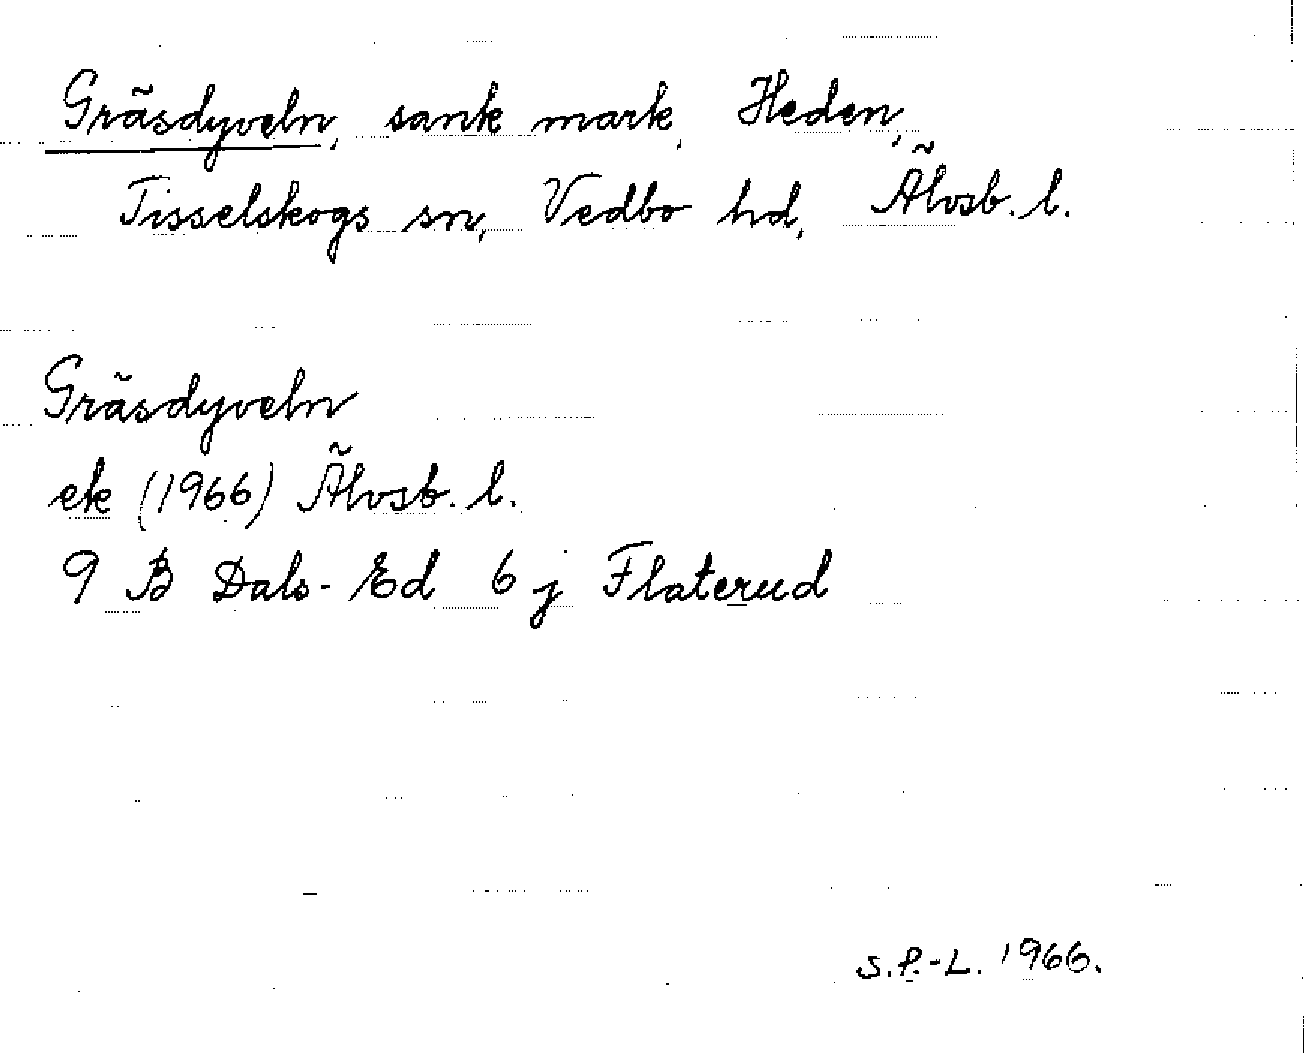 Gräsdyveln, sank mark, Heden,
Tisselskogs sn, Vedbo hd, Älvsb. l.
Gräsdyveln
ek (1966) Älvsb. l.
9 B Dals-Ed 6 j Flaterud
S.P.-L. 1966.